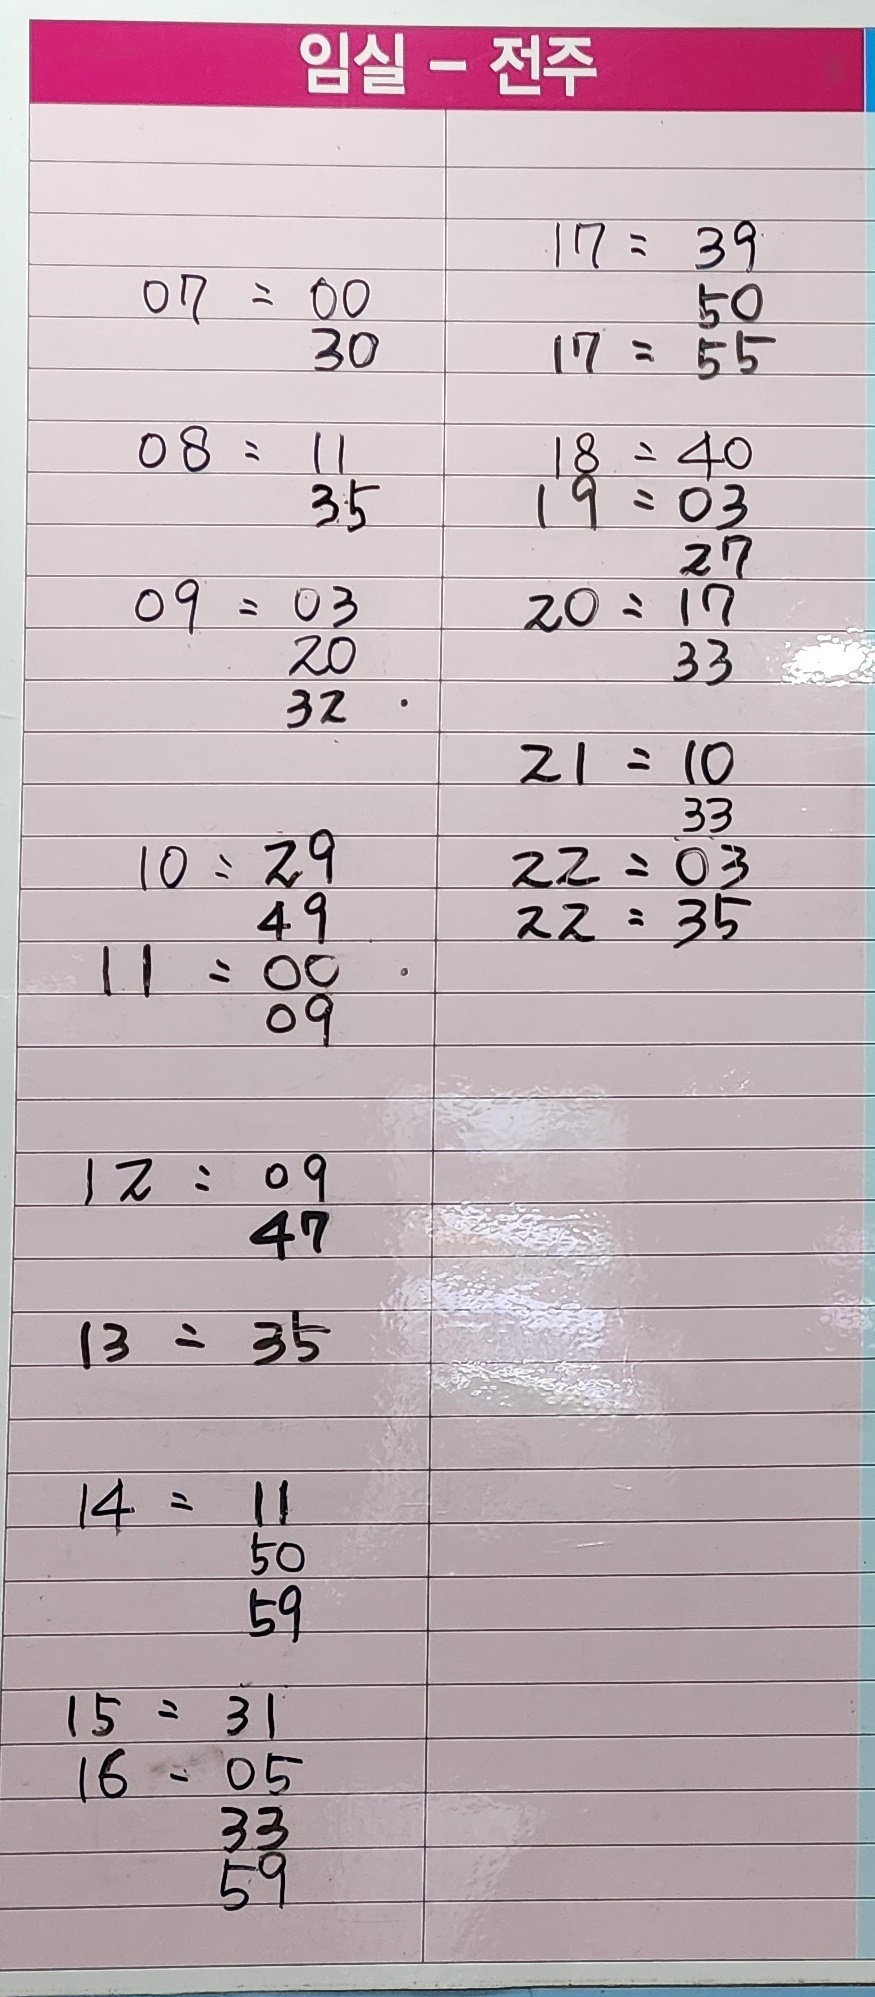 임실 - 전주
07 = 00
30
08 = 11
35
09 = 03
20
32
10 = 29
49
11 = 00
09
12 = 09
47
13 = 35
14 = 11
50
59
15 = 31
16 = 05
33
59
17 = 39
50
17 = 55
18 = 40
19 = 03
27
20 = 17
33
21 = 10
33
22 = 03
22 = 35